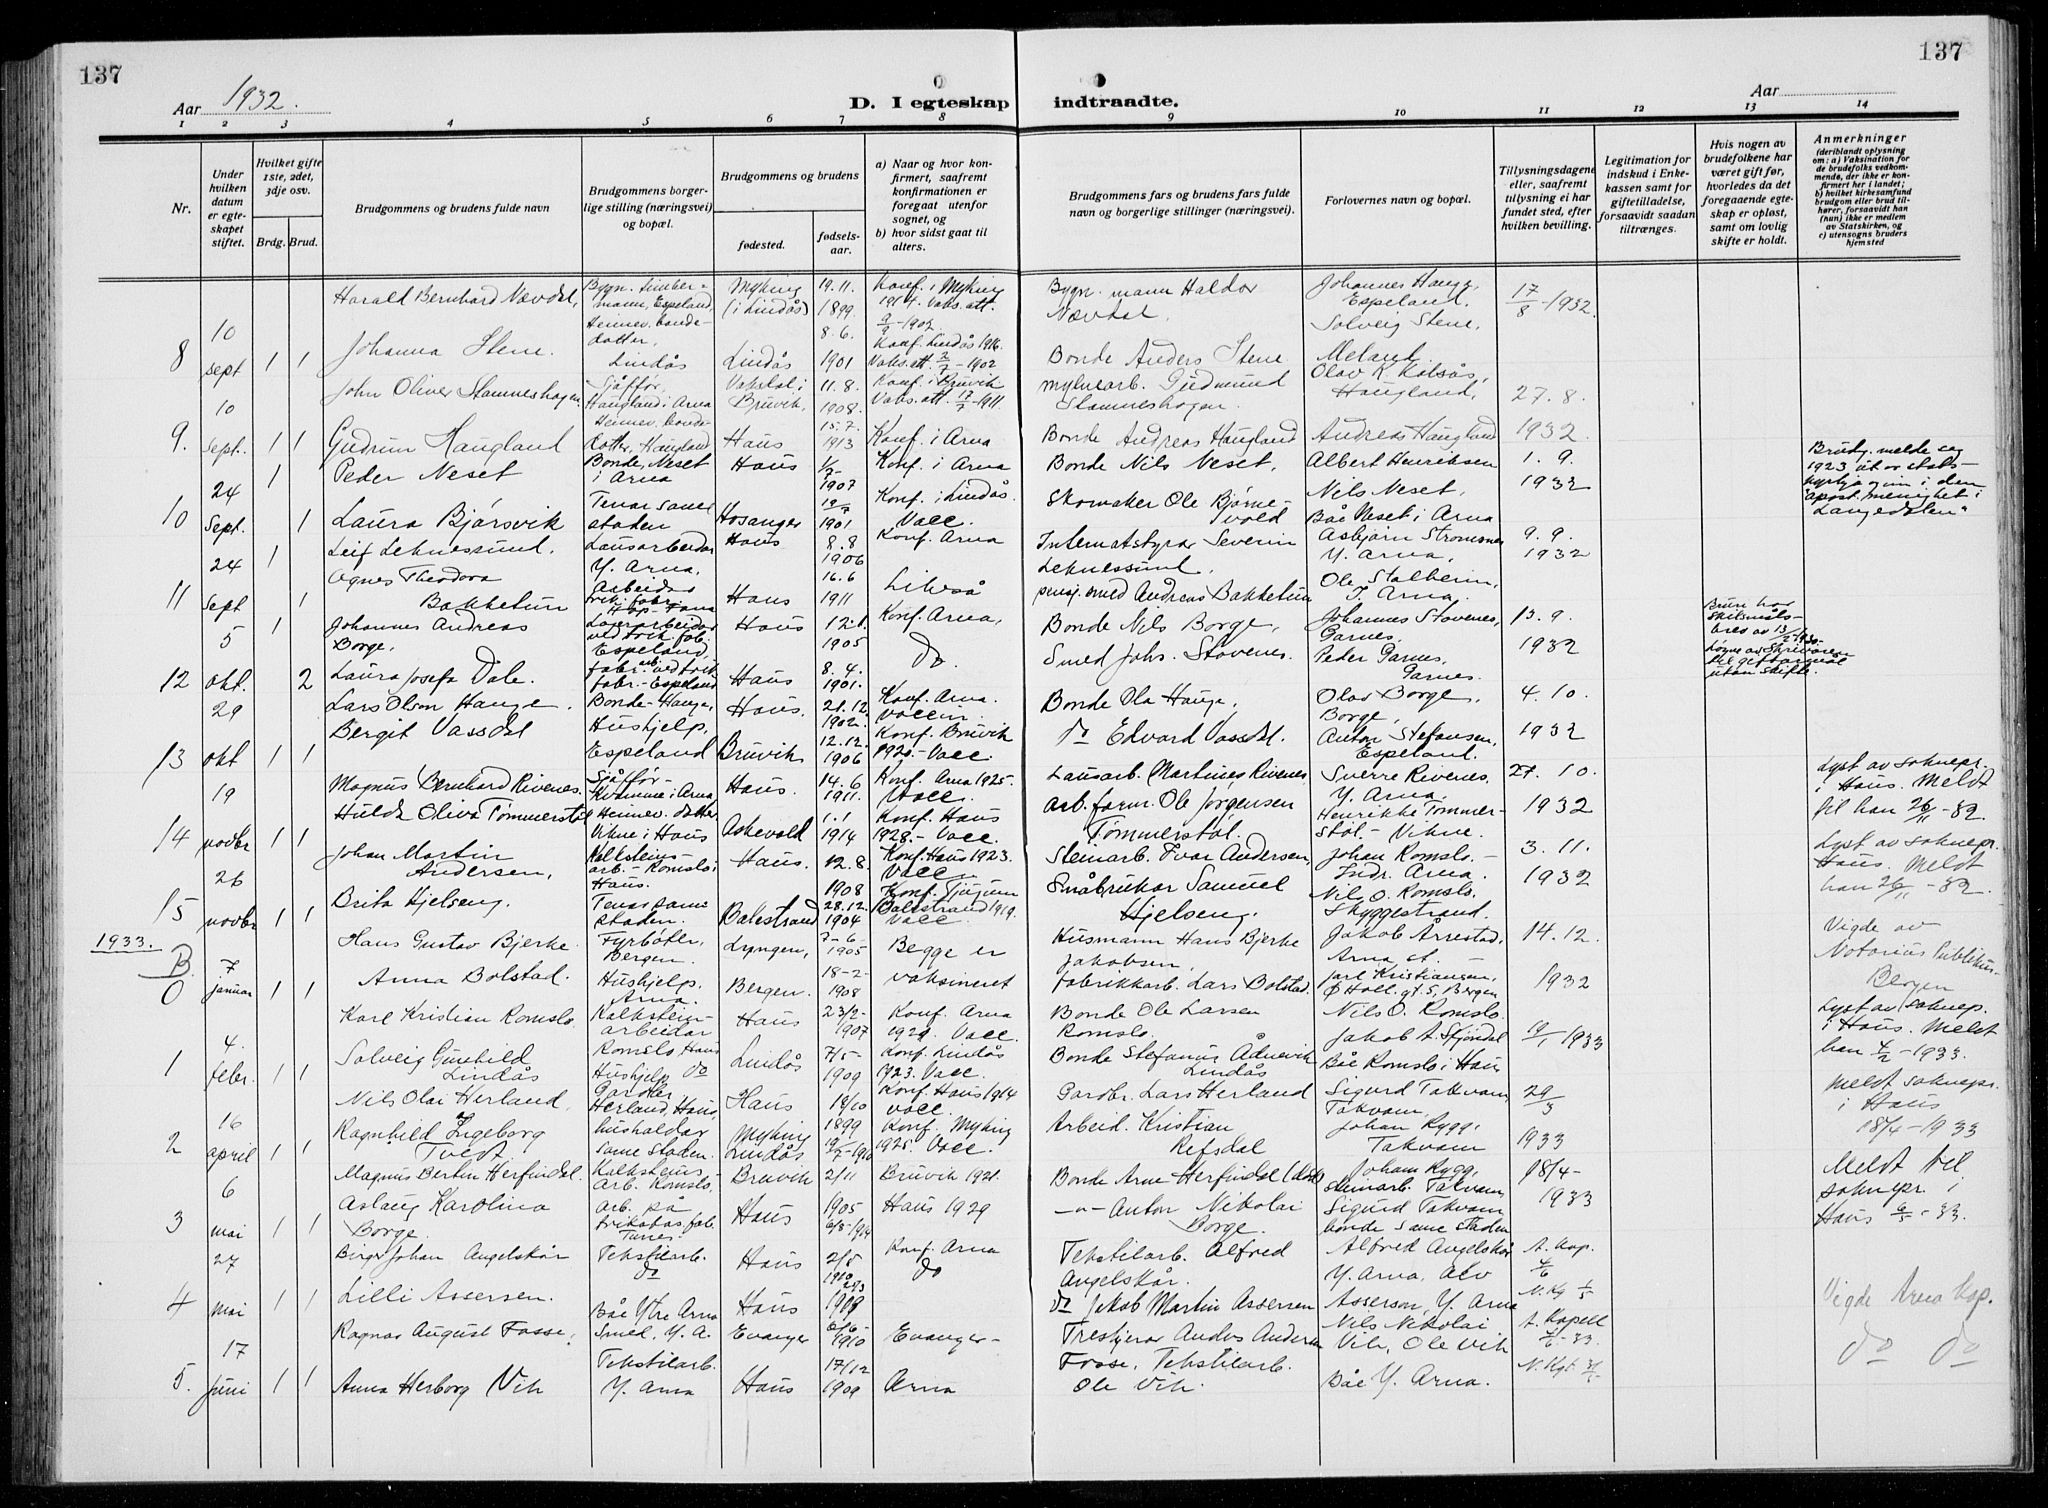 137
137
Aar 1932.
D. I egteskap indtraadte.
Aar
1 2 3 4 5 6 7 8 9 10 11 12 13 14
Nr.
Under hvilken datum er egteskapet stiftet.
Hvilket gifte 1ste, 2det, 3dje osv.
Brdg. Brud.
Brudgommens og brudens fulde navn
Brudgommens borgerlige stilling (næringsvei) og bopæl.
Brudgommens og brudens
fødested.
fødselsaar.
a) Naar og hvor konfirmert, saafremt konfirmationen er foregaat utenfor sognet, og
b) hvor sidst gaat til alters.
Brudgommens fars og brudens fars fulde navn og borgerlige stillinger (næringsvei).
Forlovernes navn og bopæl.
Tillysningsdagene eller, saafremt tillysning ei har fundet sted, efter hvilken bevilling.
Legitimation for indskud i Enkekassen samt for giftetilladelse, forsaavidt saadan tiltrænges.
Hvis nogen av brudefolkene har været gift før, hvorledes da det foregaaende egteskap er opløst, samt om lovlig skifte er holdt.
Anmerkninger
(deriblandt oplysning om: a) Vaksination for de brudefolks vedkommende, der ikke er konfirmert her i landet; b) hvilket kirkesamfund brudgom eller brud tilhører, forsaavidt han (hun) ikke er medlem av Statskirken, og c) utensogns bruders hjemsted
8 10 sept 1 1
Harald Bernhard Nævdal, Bygn. timbermann, Espeland, Myking (i Lindås) 19.11. 1899. Konf. i Myking 1914. Vaks. att. 9/9-1902. Bygn. mann Haldor Nævdal. Johannes Haugg, Espeland. 17/8-1932.
Johanna Stene. Heimev. bondedotter, Lindås Lindås 8.6. 1901 Konf. Lindås 1916. Vaks. att. 2/7-1902 Bonde Anders Stene Solveig Stene, Meland.
9. 10 Sept. 1 1
John Oliver Stamneshagen Sjåffør, Haugland i Arna Vaksdal i Bruvik, 11.8. 1908. Konf. i Bruvik Vaks. att. 17/7-1911. Mylnearb. Gudmund Stamneshagen. Olav K. Kalsås, Haugland, 27.8. 1932.
Gudrun Haugland Heimev. bondedotter, Haugland Haus 15.7. 1913 Konf. i Arna Bonde Andreas Haugland Andreas Haugland
10 24 Sept. 1 1
Peder Neset Bonde, Neset i Arna Haus 1907 Konf. i Arna Bonde Nils Neset, Albert Henriksen 1.9. 1932
Laura Bjørsvik Tenar same staden Hosanger 1901 Konf. i Lindås. Vacc. Skomaker Ole Bjørnevold Nils Neset, Båe Neset i Arna
Brudg. melde seg 1923 ut or statskyrkja og inn i den "apost. menighet i Langedalen"
11 24 sept 1 1
Leif Leknessund. Lausarbeidar Y. Arna, Haus 8.8 1906 Konf. Arna Internatstyrar Severin Leknessund, Asbjørn Strømsnes Y. Arna, 9.9. 1932
Agnes Theodora Bakketun Arbeidar trik. fabr. Hop. Fana Haus 16.6 1911 Likeså pensj. smed Andreas Bakketun Ole Stalheim, I. Arna.
12 5 okt. 1 2
Johannes Andreas Borge. Lagerarbeidar ved trik. fab. Espeland, Haus 12.1. 1905 Konf. Arna, Bonde Nils Borge, Johannes Stavenes, Garnes, 13.9. 1932
Laura Josefa Dale. fabr. arb. ved trik fabr. - Espeland Haus 8.4. 1901. do. Smed Johs. Stavenes. Peder Garnes, Garnes.
13 29 okt 1 1
Lars Olson Hauge. Bonde - Hauge, Haus. 21.12 1902. Konf. Arna. Vaccin. Bonde Ola Hauge, Olav Borge, Borge, 4.10. 1932
Bergit Vassdal Hushjelp, Espeland Bruvik 12.12. 1906 Konf. Bruvik 1920. - Vacc. do Edvard Vassdal. Anton Stefansen, Espeland.
14 19 novbr 1 1
Magnus Bernhard Rivenes. Sjåffør - Kvamme i Arna Haus. 14.6 1911. Konf. Arna 1925. Vacc. Lausarb. Martines Rivenes Sverre Rivenes, Y. Arna. 27.10. 1932
Hulda Oliva Tømmerstøl Heimev. dotter Vikne i Haus Askevold 1.1 1914 Konf. Haus 1928. - Vacc. Arb. form. Ole Jørgensen Tømmerstøl. Henrikke Tømmerstøl - Vikne.
Lyst av soknepr. i Haus. Meldt til han 26/11-32.
15 26 novbr 1 1
Johan Martin Andersen, Kalksteinsarb. - Romslo i Haus. Haus. 12.8. 1908 Konf. Haus 1923. Vacc. Steinarb. Ivar Andersen, Johan Romslo. - Indr. Arna. 3.11. 1932
Brita Hjelseng. Tenar same staden. Balestrand 28.12. 1904 Konf. Tjugum Balestrand 1919. Vacc. Småbrukar Samuel Hjelseng. Nils O. Romslo. Skyggestrand.
Lyst av soknepr. Haus. Meldt han 26/11-32.
1933.
B. 0 7 januar 1 1
Hans Gustav Bjerke Fyrbøter, Bergen. Lyngen, 7-6- 1905 Begge er vaksineret Husmann Hans Bjerke Jakobsen, Jakob Årrestad, Arna st. - 14.12. 1932
Anna Bolstad. Hushjelp, Arna. Bergen. 18-2- 1908 Fabrikkarb. Lars Bolstad. Jarl Kristiansen, Ø Holl. gt. 5, Bergen
Vigde av Notarius Publikus - Bergen
1 4. febr. 1 1
Karl Kristian Romslo. Kalksteinarbeidar Romslo Haus Haus 23/2- 1907 Konf. Arna 1929. Vacc. Bonde Ole Larsen Romslo. Nils O. Romslo. 19/1 1933
Solveig Gunhild Lindås Hushjelp do Lindås 7/5- 1909 Konf. Lindås 1923. Vacc. Bonde Stefanus Ådnevik Lindås Jakob A. Stjøndal Båe Romslo i Haus
Lyst av soknep. i Haus. Meldt han 4/2-1933.
2 16 april 1 1
Nils Olai Herland, Gardbr Herland, Haus, Haus 19/10 1899 Konf. Haus 1914 vacc. Gardbr. Lars Herland Sigurd Takvam, Takvam, 29/3 1933
Ragnhild Ingeborg Tvedt hushaldar same staden. Myking Lindås Konf. Myking 1925. Vacc. Arbeid. Kristian Refsdal Johan Rygg, Takvam
Meldt soknepr. i Haus 18/4-1933
3 6 mai 1 1
Magnus Bertin Herfindal. Kalksteinsarb. Romslo, Bruvik 2/11 1905 Bruvik 1921. Bonde Arne Herfindal Johan Rygg, steinarb. Takvam 18/4- 1933
Aslaug Karolina Borge arb. på trikotasfab. Haus Haus 1929 -"- Anton Nikolai Borge. Sigurd Takvam bonde same staden
Meldt til soknepr. i Haus 6/5-33.
4 27 mai 1 1
Birger Johan Angelskår Tekstilarb. Haus 2/5 1910 Konf. Arna Tekstilarb. Alfred Angelskår. Alfred Angelskår Y. Arna, Alv A. Kap.
Lilli Assersen. do Båe Ytre Arna Haus do do Jakob Martin Assersen Asserson, Y. Arna
Vigde Arna Kap.
5. 17 juni 1 1
Ragnar August Fosse, Smed, Y. A. Evanger 6/6- 1910 Evanger - Trestjerar Anders Andersen Fosse, Nils Nikolai Vik, Ole Vik A. Kapell
Anna Herborg Vik Tekstilarb. Y. Arna Haus 17/12 1909 Arna Tekstilarb. Ole Vik. Båe Y. Arna.
do do